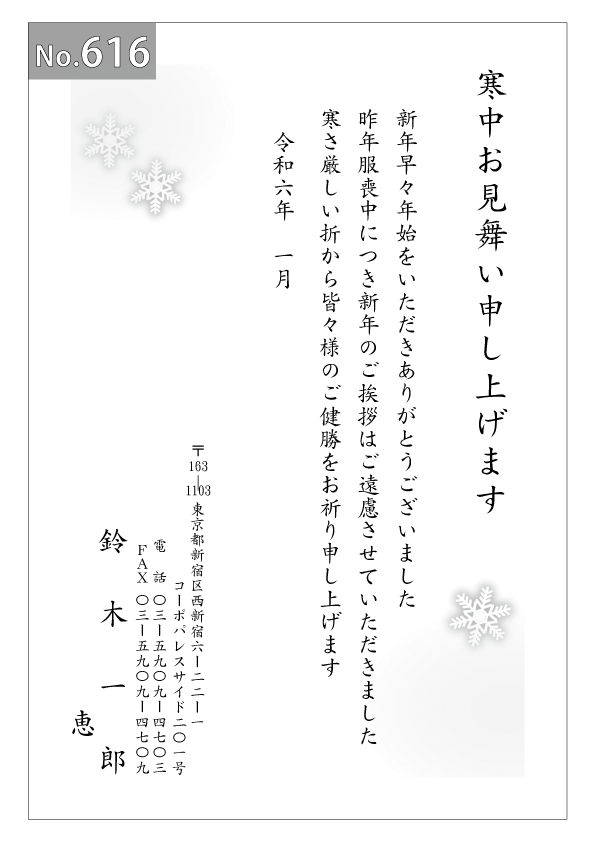 No.616
寒中お見舞い申し上げます
新年早々年始をいただきありがとうございました
昨年服喪中につき新年のご挨拶はご遠慮させていただきました
寒さ厳しい折から皆々様のご健勝をお祈り申し上げます
令和六年　一月
〒163-1103 東京都新宿区西新宿六ー二二ー一
コーポパレスサイド二〇一号
電　話　〇三ー五九〇九ー四七〇三
ＦＡＸ　〇三ー五九〇九ー四七〇九
鈴木一郎
恵